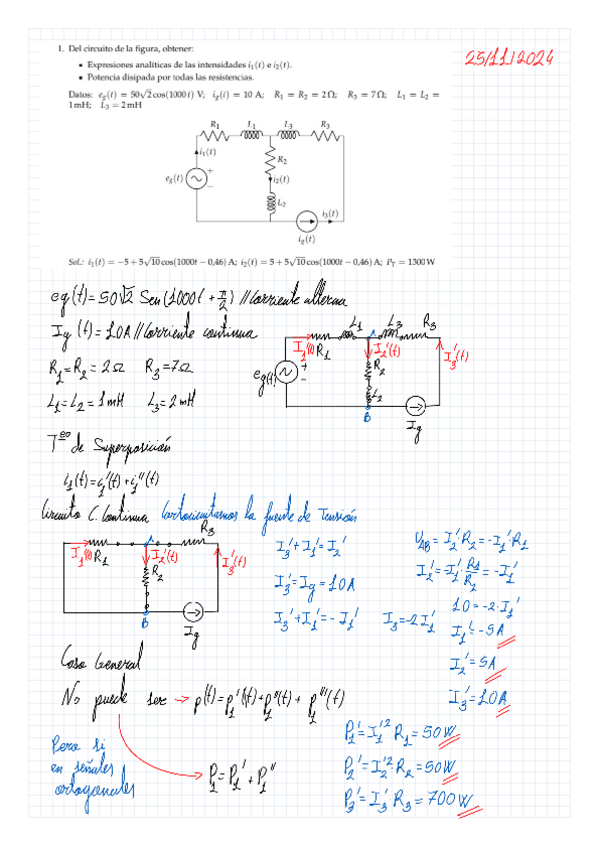 1. Del circuito de la figura, obtener:
25/11/2024
• Expresiones analíticas de las intensidades i₁(t) e i₂(t).
• Potencia disipada por todas las resistencias.
Datos: e_g(t) = 50√2 cos(1000 t) V; i_g(t) = 10 A; R₁ = R₂ = 2 Ω; R₃ = 7 Ω; L₁ = L₂ =
1 mH; L₃ = 2 mH
R₁ L₁ L₃ R₃
i₁(t)
R₂
e_g(t) + − i₂(t)
L₂
i₃(t)
i_g(t)
Sol.: i₁(t) = −5 + 5√10 cos(1000t − 0,46) A; i₂(t) = 5 + 5√10 cos(1000t − 0,46) A; P_T = 1300 W
eg(t) = 50√2 Sen(1000t + π/2) // Corriente alterna
Ig(t) = 10A // Corriente continua
R₁ = R₂ = 2Ω R₃ = 7Ω
L₁ = L₂ = 1mH L₃ = 2mH
L₁ A L₃ R₃
R₁ I₂'(t) I₃'(t)
eg(t) + − R₂
L₂
B Ig
Tᵉᵒ de Superposición
i₁(t) = i₁'(t) + i₁''(t)
Circuito C. Continua Cortocircuitamos la fuente de Tensión
R₃
A
R₁ I₂'(t) I₃'(t)
R₂
B
Ig
I₃' + I₁' = I₂'
I₃' = Ig = 10A
I₃' + I₁' = - I₁' I₃ = -2I₁'
U_AB = I₂'·R₂ = -I₁'·R₁
I₂' = -I₁'·R₁/R₂ = -I₁'
10 = -2·I₁'
I₁' = -5A
I₂' = 5A
I₃' = 10A
Caso General
No puede ser → p(t) = p₁'(t) + p₁''(t) + p₁'''(t)
Pero si
en señales
ortogonales
P₁ = P₁' + P₁''
P₁' = I₁'²·R₁ = 50W
P₂' = I₂'²·R₂ = 50W
P₃' = I₃'·R₃ = 700W